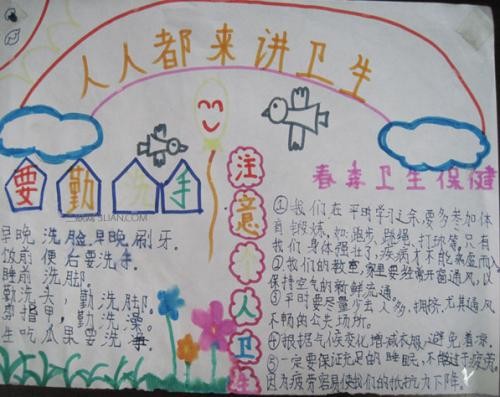 人人都来讲卫生
要勤洗手
早晚洗脸,早晚刷牙。
饭前便后要洗手。
睡前洗脚。
勤洗头,勤洗脚。
勤剪指甲,勤洗澡。
生吃瓜果要洗净。
注意个人卫生
春季卫生保健
①我们在平时学习之余,要多参加体
育锻炼,如:跑步、跳绳、打球等,只有
我们身体强壮了,疾病才不能乘虚而入
②我们的教室、家里要经常开窗通风,以
保持空气的新鲜流通。
③平时要尽量少去人多、拥挤,尤其通风
不畅的公共场所。
④根据气候变化增减衣服,避免着凉。
⑤一定要保证充足的睡眠,不能过于疲劳。
因为疲劳容易使我们的抵抗力下降。